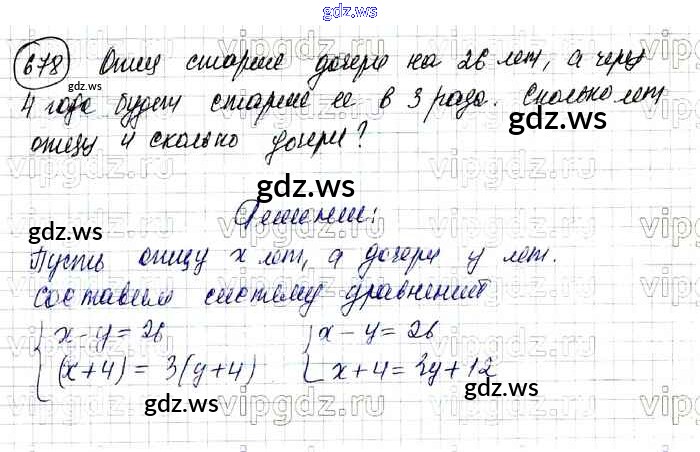 gdz.ws
678 Отец старше дочери на 26 лет, а через
4 года будет старше ее в 3 раза. Сколько лет
отцу и сколько дочери?
gdz.ws
gdz.ws
gdz.ws
Решение:
Пусть отцу x лет, а дочери y лет.
Составим систему уравнений
x - y = 26 x - y = 26
(x+4) = 3(y+4) x+4 = 3y+12
gdz.ws
gdz.ws
vipgdz.ru